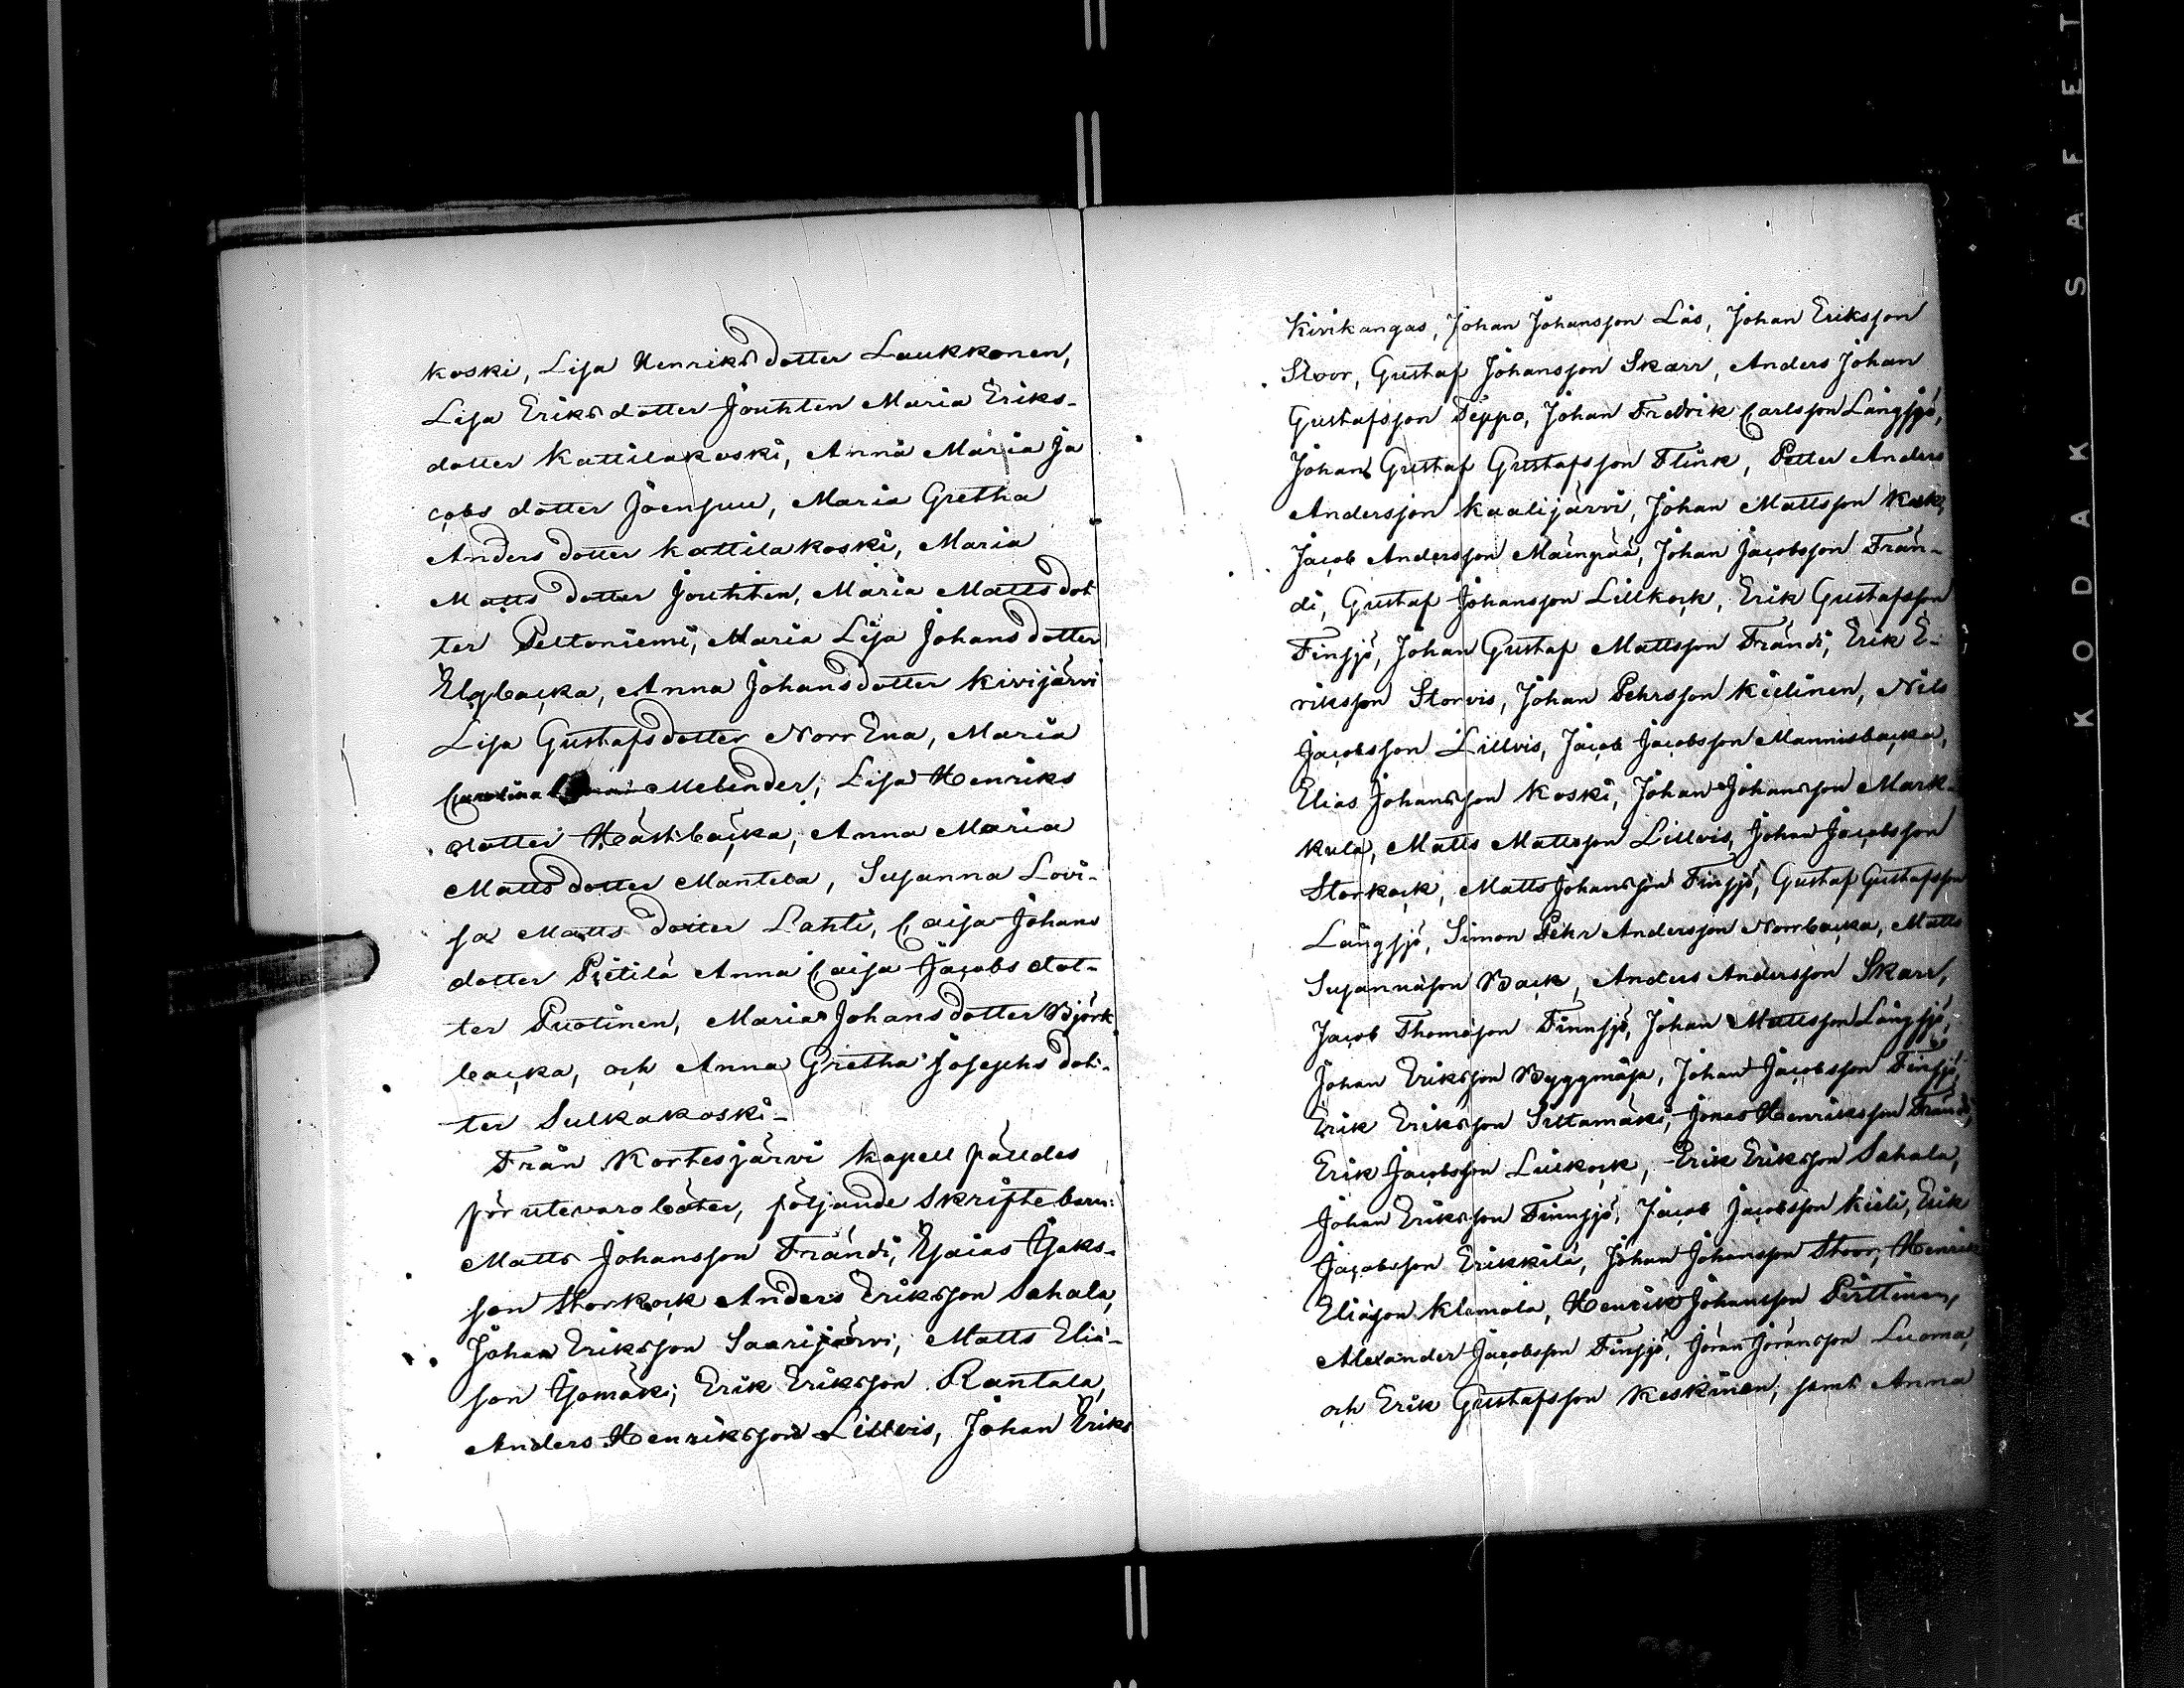 koski, Lisa Henriksdotter Laukkonen,
Lisa Eriksdotter Jouhten Maria Eriks-
dotter Kattilakoski, Anna Maria Ja
cobs dotter Joensuu, Maria Gretha
Anders dotter Kattilakoski, Maria
Matts dotter Jouhten, Maria Matts dot
ter Peltoniemi, Maria Lisa Johans dotter
Elgbacka, Anna Johansdotter Kivijärvi
Lisa Gustafsdotter Norr Ena, Maria
Carolina Melender, Lisa Henriks
dotter Hästbacka, Anna Maria
Mattsdotter Mantela, Susanna Lovi-
sa Matts dotter Lahti, Caisa Johans
dotter Pietilä Anna Caisa Jacobs dot-
ter Puotinen, Maria Johansdotter Björk
backa, och Anna Gretha Josephs dot-
ter Sulkakoski-
Från Kortesjärvi Kapell fälldes
för utevaro böter, följande Skriftebarn:
Matts Johansson Frändi, Esaias Isaks-
son Storkock Anders Eriksson Sahala,
Johan Eriksson Saarijärvi, Matts Elia-
son Isomäki, Erik Eriksson Rantala,
Anders Henriksson Lillvis, Johan Eriks
Kivikangas, Johan Johansson Lås, Johan Eriksson
Stoor, Gustaf Johansson Skarr, Anders Johan
Gustafsson Teppo, Johan Fredrik Carlsson Långsjö,
Johan Gustaf Gustafsson Flink, Petter Anders
Andersson Kaalijärvi, Johan Mattsson Kock,
Jacob Andersson Mäenpää, Johan Jacobsson Frän-
di, Gustaf Johansson Lillkock, Erik Gustafsson
Finsjö, Johan Gustaf Mattsson Frändi, Erik E-
riksson Storvis, Johan Pehrsson Kielinen, Nils
Jacobsson Lillvis, Jacob Jacobsson Mannisbacka,
Elias Johansson Koski, Johan Johansson Mark-
kula, Matts Mattsson Lillvis, Johan Jacobsson
Storkock, Matts Johansson Finsjö, Gustaf Gustafsson
Långsjö, Simon Pehr Andersson Norrbacka, Matts
Susannason Back, Anders Andersson Skarr,
Jacob Thomason Finnsjö, Johan Mattsson Långsjö,
Johan Eriksson Byggmäsa, Johan Jacobsson Finsjö,
Erik Eriksson Siltamäki, Jonas Henriksson Frändi,
Erik Jacobsson Lillkock, Erik Eriksson Sahala,
Johan Eriksson Finnsjö, Jacob Jacobsson Kieli, Erik
Jacobsson Erikkilä, Johan Johansson Stoor, Henrik
Eliason Klemola, Henrik Johansson Pirttinen,
Alexander Jacobsson Finsjö, Jöran Jöransson Luoma,
och Erik Gustafsson Keskinen, samt Anna
KODAK SAFET